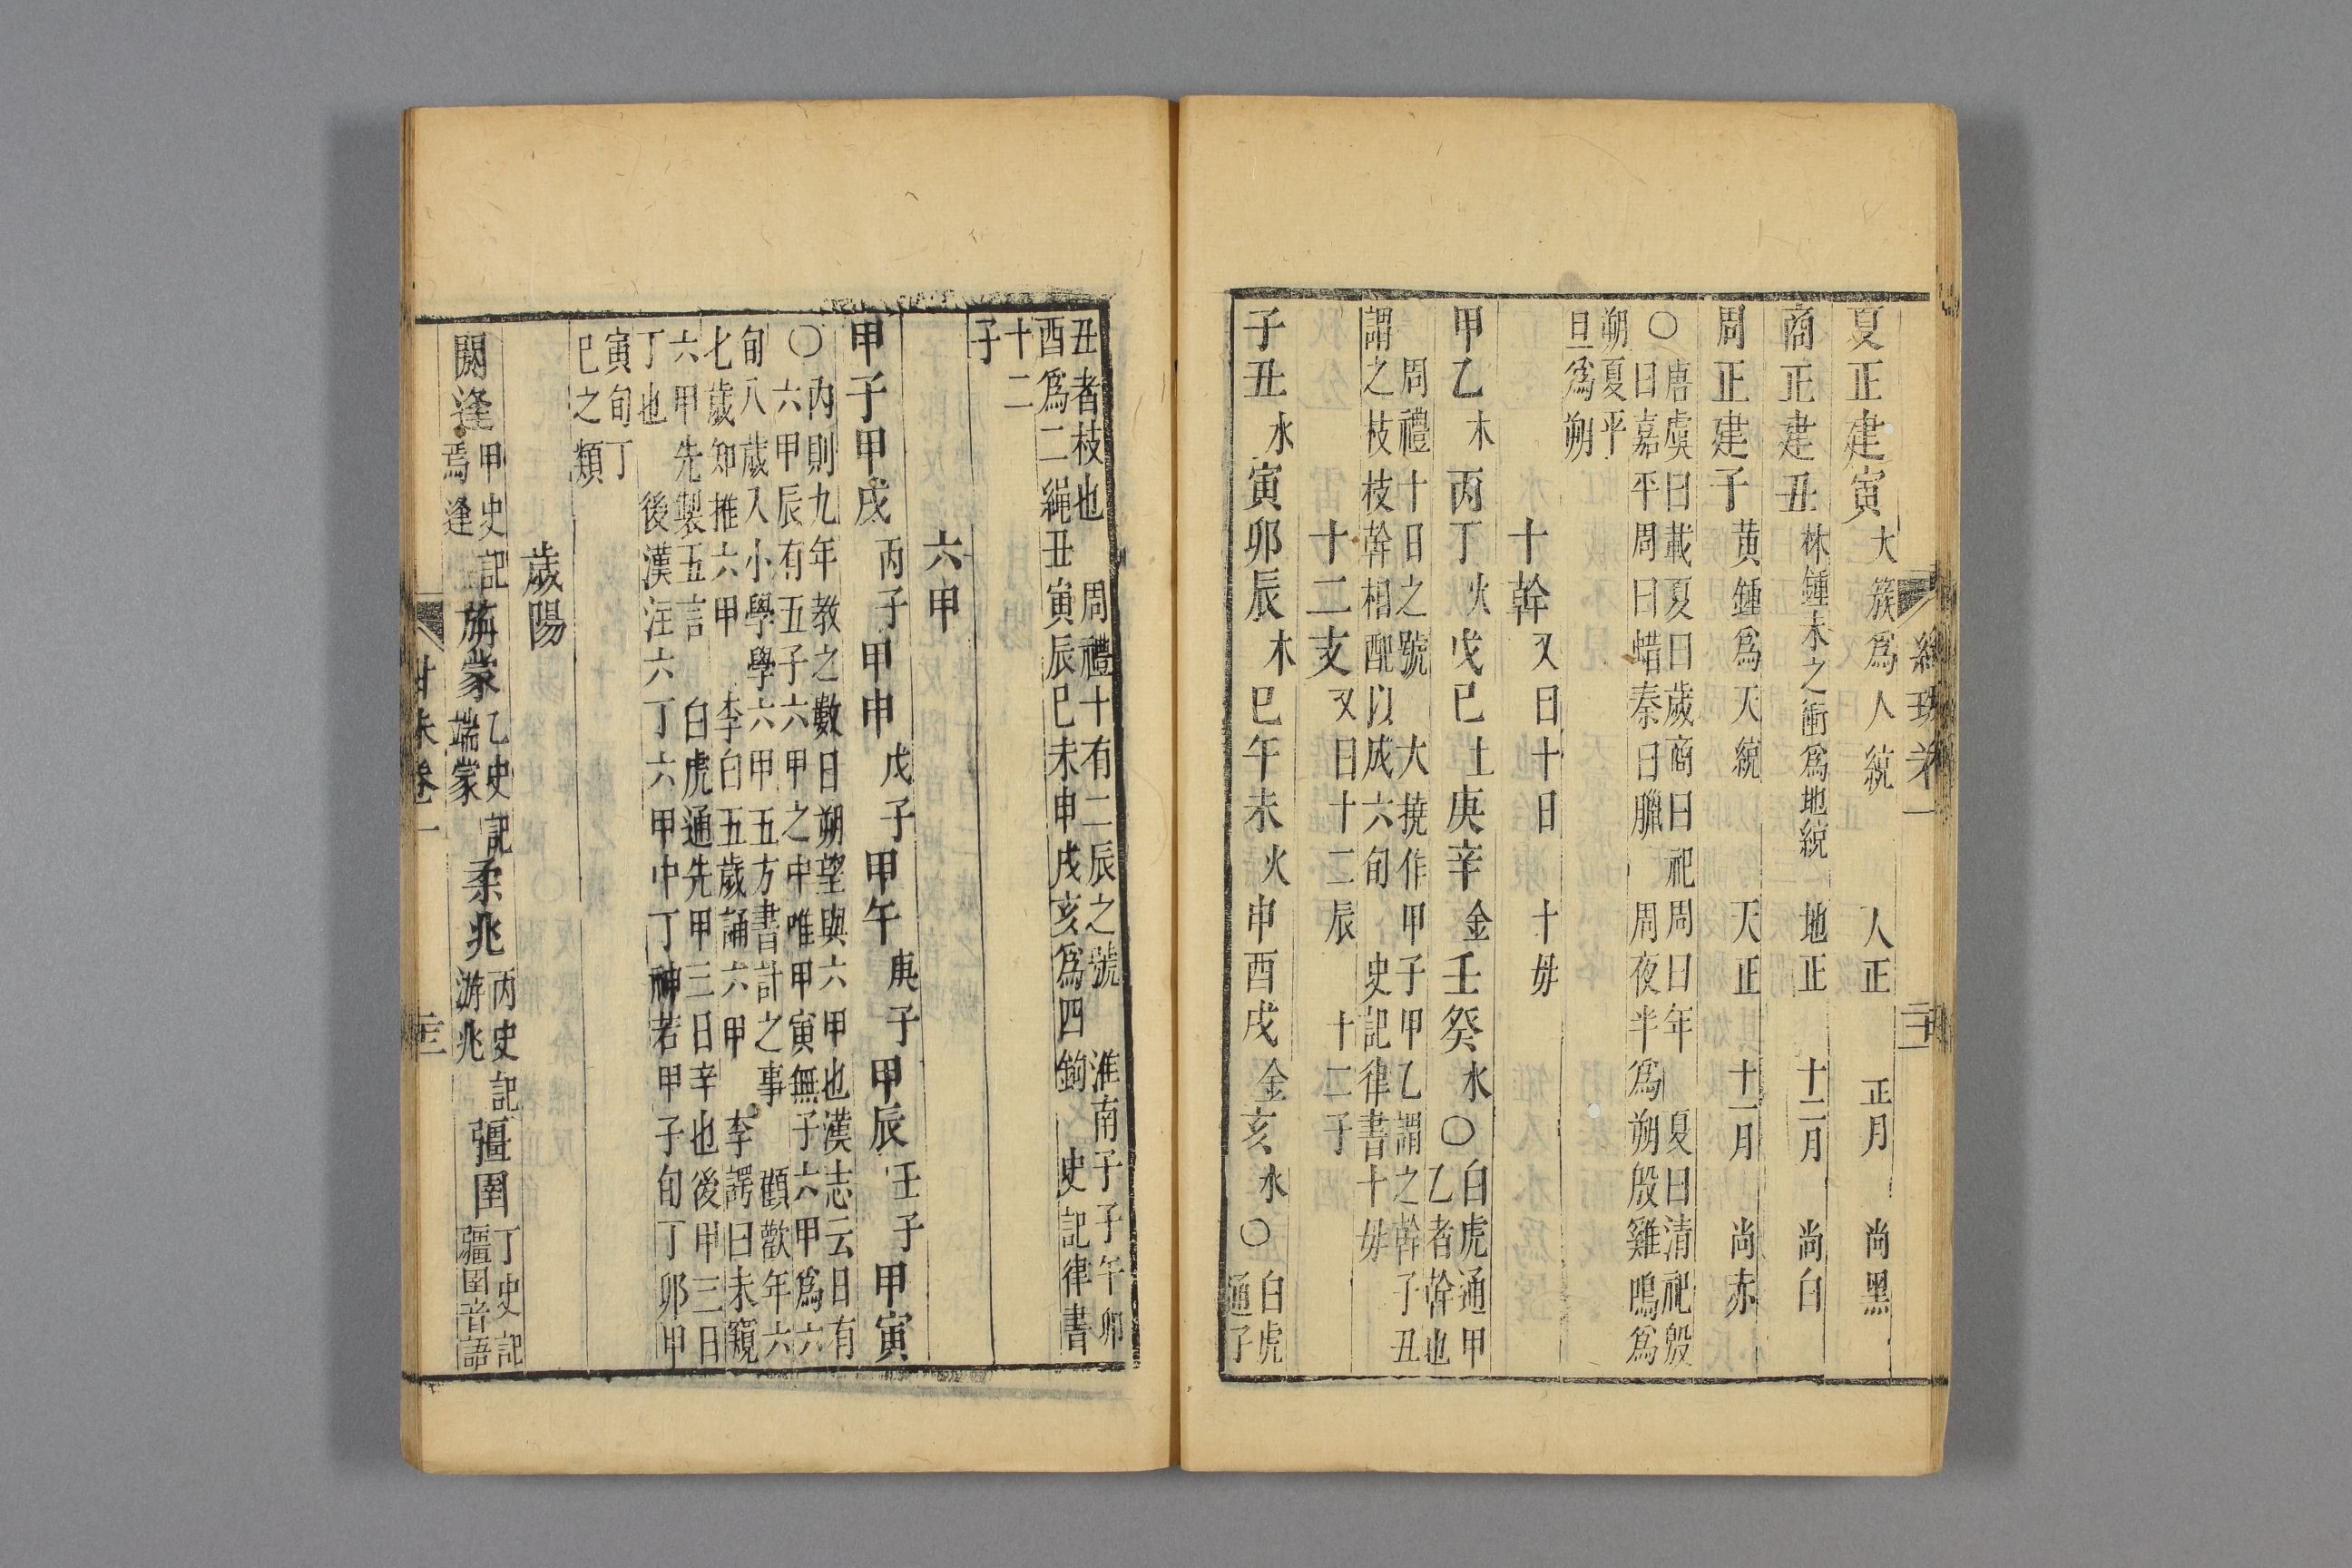 夏正建寅 大簇爲人統 人正 正月 尚黑
商正建丑 林鍾未之衝爲地統 地正 十二月 尚白
周正建子 黄鍾爲天統 天正 十一月 尚赤
〇唐虞曰載夏曰歲商曰祀周曰年 夏曰清祀殷
曰嘉平周曰蜡秦曰臘 周夜半爲朔殷雞鳴爲
朔夏平
旦爲朔
十幹 又曰十日 十母
甲乙木丙丁火戊己土庚辛金壬癸水〇白虎通甲
乙者幹也
周禮十日之號 大撓作甲子甲乙謂之幹子丑
謂之枝枝幹相配以成六旬 史記律書十母
十二支 又曰十二辰 十二子
子丑水寅卯辰木巳午未火申酉戌金亥水〇白虎
通子
丑者枝也 周禮十有二辰之號 淮南子子午卯
酉爲二繩丑寅辰巳未申戌亥爲四鉤 史記律書
十二
子
六甲
甲子甲戌丙子甲申戊子甲午庚子甲辰壬子甲寅
〇内則九年教之數日朔望與六甲也漢志云日有
六甲辰有五子六甲之中唯甲寅無子六甲爲六
旬八歲入小學學六甲五方書計之事 顧歡年六
七歲知推六甲 李白五歲誦六甲 李諤曰未窺
六甲先製五言 白虎通先甲三日辛也後甲三日
丁也 後漢注六丁六甲中丁神若甲子旬丁卯甲
寅旬丁
巳之類
歲陽
閼逢甲史記焉逢旃蒙乙史記端蒙柔兆丙史記游兆彊圉丁史記彊圉音語
卷一